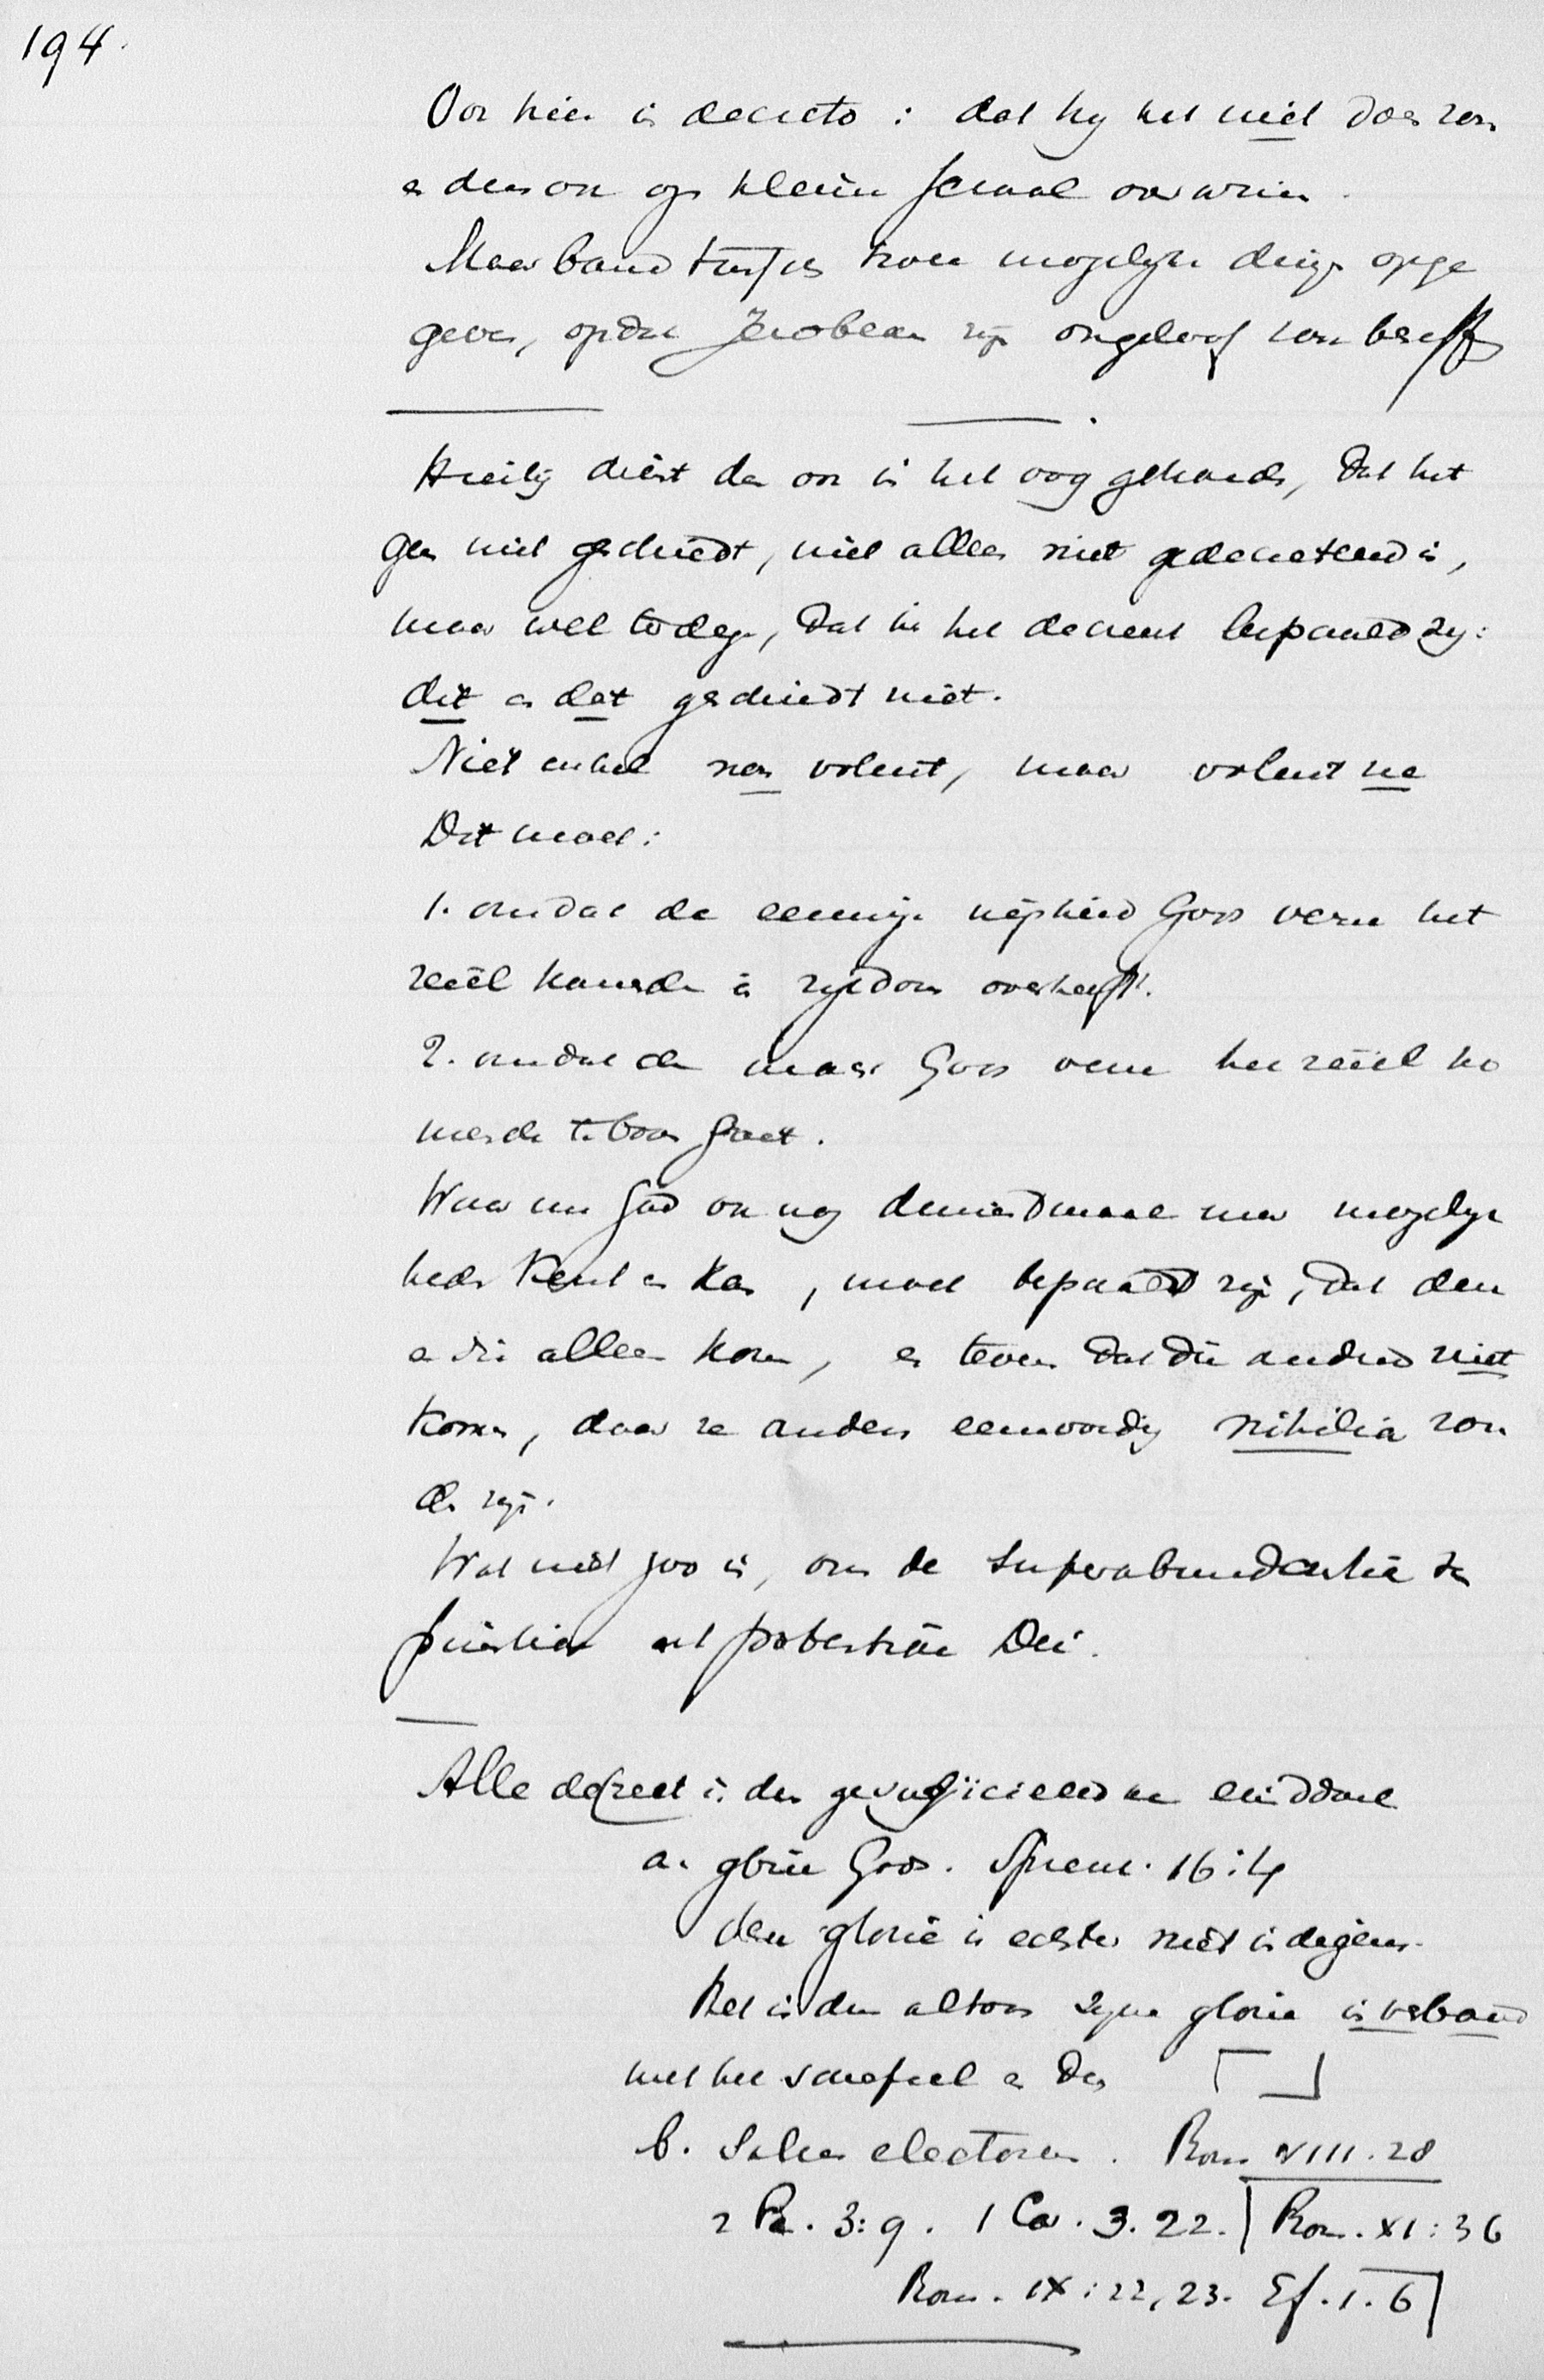 194.
Ook hier is decreto: dat hij het niet doen zou
en dus ook op kleine schaal overwinnen.
geven, opdat Jerobeam zijn ongeloof zou beseffen
dient dan ook in het oog gehouden, dat het
geen niet geschiedt, niet alleen niet gedecreteerd is,
maar wel te degen, dat in het decreet bepaald zij:
dit en dat geschiedt niet.
Niet enkel non voluit, maar voluit ne
Dit moet:
1. omdat de eeuwige wijsheid Gods verre het
reëel komende in rijkdom overtreft.
2. omdat de macht Gods verre het reëel ko
mende te boven gaat.
Waar nu God ook nog duizendmaal meer mogelijk
heden kent en kan, moet bepaald zijn, dat deze
en die alleen komen, en tevens dat die anderen niet
komen, daar ze anders eenvoudig nihilia zou
den zijn.
Wat niet zoo is, om de superabundantia sa
pientiae et potestatis Dei.
Alle decreet is dus een einddoel
a. glorie Gods. Spreuk. 16:4
deze glorie is echter niet indigens.
Het is dus altoos zijne glorie in verband
met het en den
b. Salus electorum. Rom VIII. 28
2 Pe. 3:9. 1 Cor. 3. 22. | Rom. XI: 36
Rom. IX: 22, 23. Ef. 1. 6 |